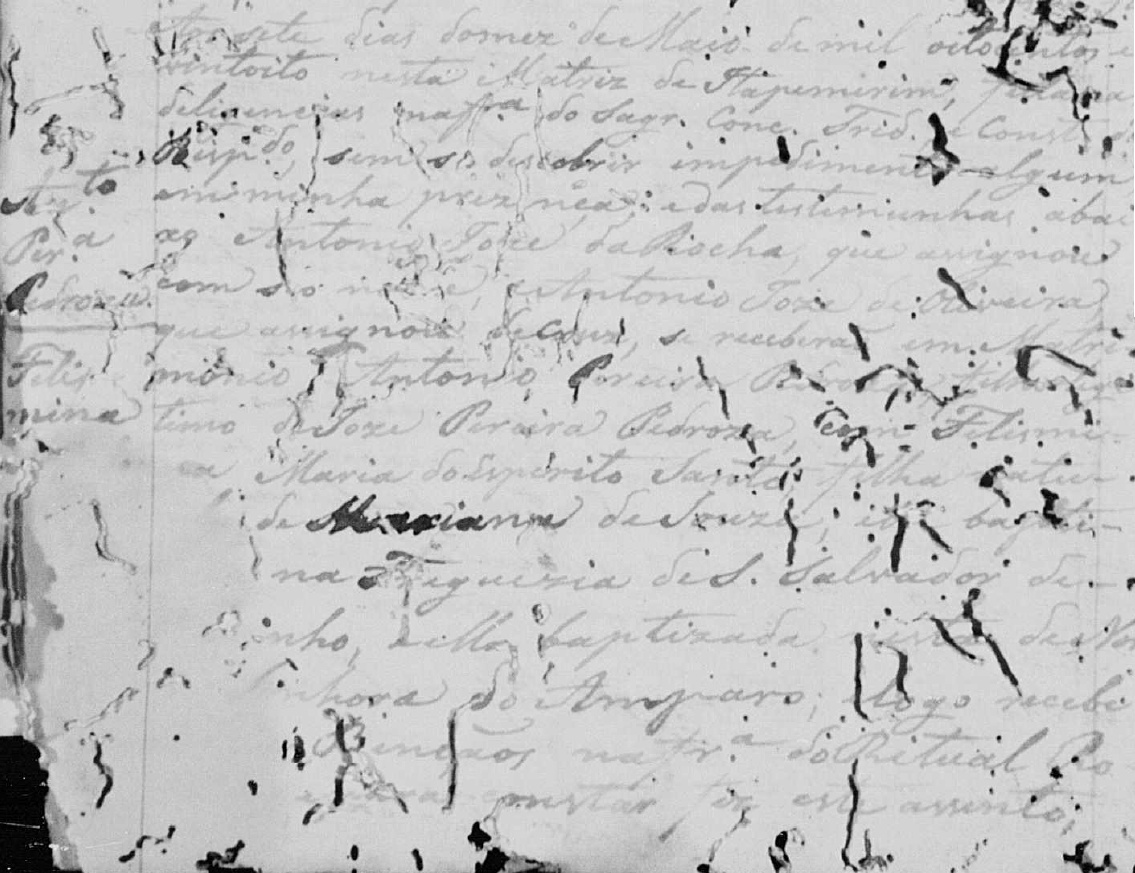 sete dias domez de Maio de mil oitocentos e
vintoito nesta Matriz de Itapemirim,
deligencias na fr.a do Sagr. Conc. Trid. e Const. do
Bispdo, sem se descobrir impedimento algum
em minha preznça, e das testemunhas abai
xo Antonio Joze da Rocha, que assignou
com s o nome, e Antonio Joze de Oliveira,
que assignou de cruz, se receberão em Matri-
monio Antonio Pereira Pedroza, filho legi
timo de Joze Pereira Pedroza, com Felismi-
a Maria do Espirito Santo filha natu-
de Mariana de Souza, bapti-
na Freguezia de S. Salvador de
inho, e ella baptizada nesta de No
nhora do Amparo; e logo recebe
Bençãos na fr.a do Ritual Ro-
constar fiz este assento,
Ant.to
Per.a
Pedroza
Felis
mina